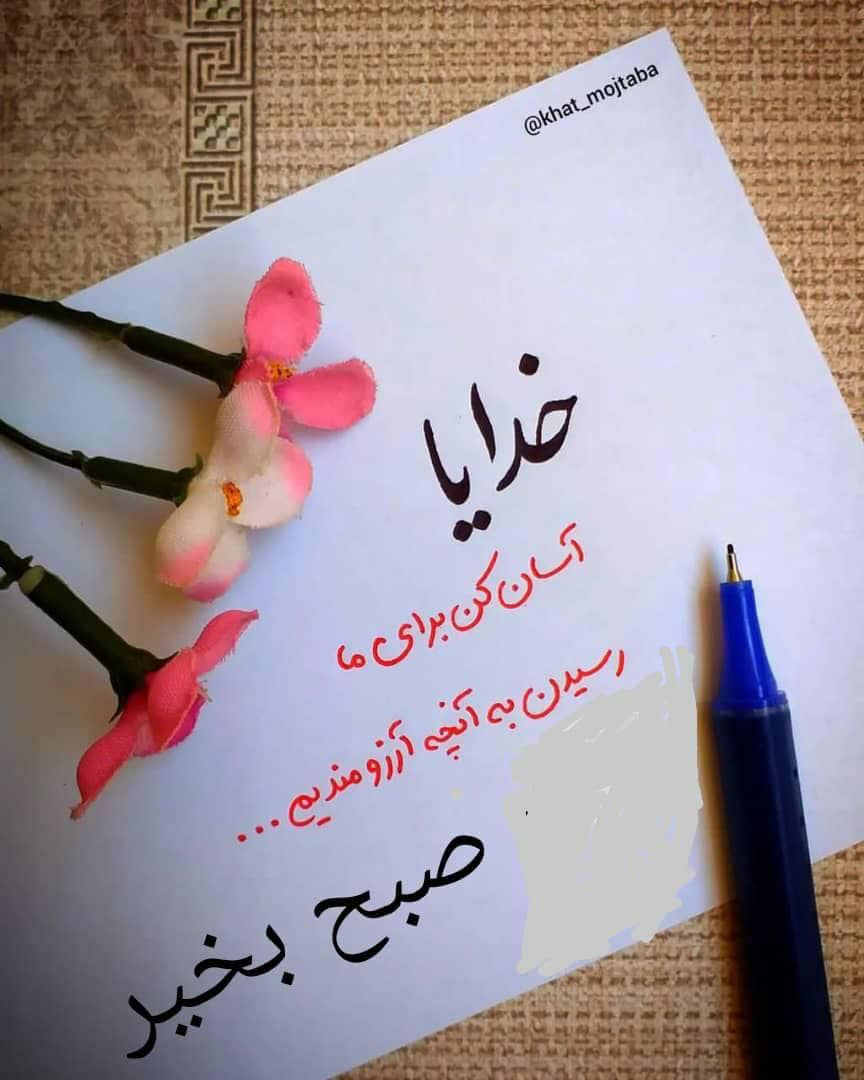 @khat_mojtaba
خدایا
آسان کن برای ما
رسیدن به آنچه آرزومندیم...
صبح بخیر